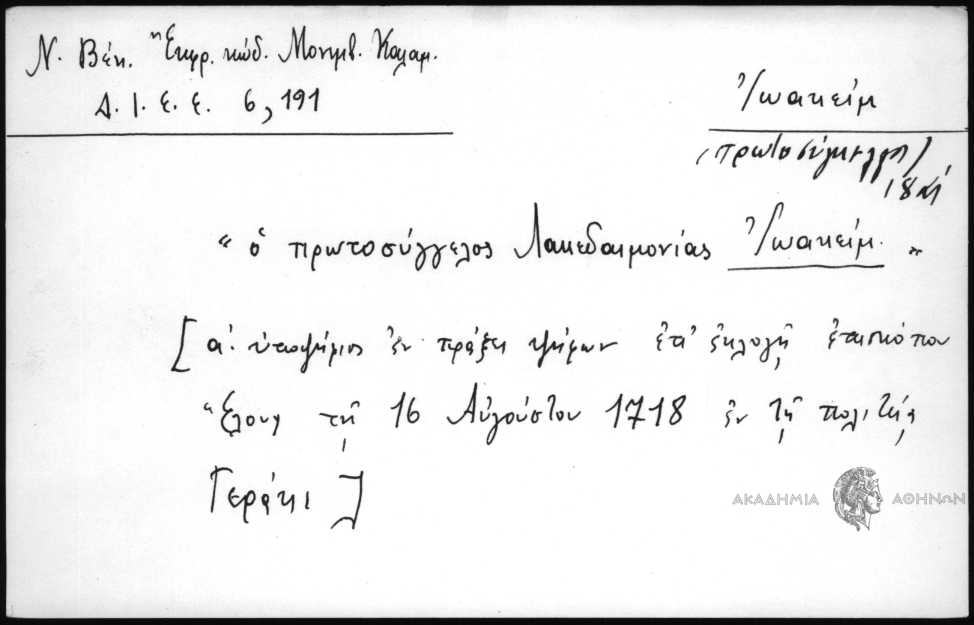 Ν. Βέη. "Έκφρ. κώδ. Μονεμβ. Καλαμ.
Δ. Ι. Ε. Ε. 6, 191
Ἰωακείμ
(πρωτοσύγκελλος)
"ὁ πρωτοσύγγελος Λακεδαιμονίας Ἰωακείμ."
[α. ὑποψήφιος ἐν πράξει ψήφων ἐπ' ἐκλογῇ ἐπισκόπου
Ἕλους τῇ 16 Αὐγούστου 1718 ἐν τῇ πολιτείᾳ
Γεράκι]
ΑΚΑΔΗΜΙΑ ΑΘΗΝΩΝ